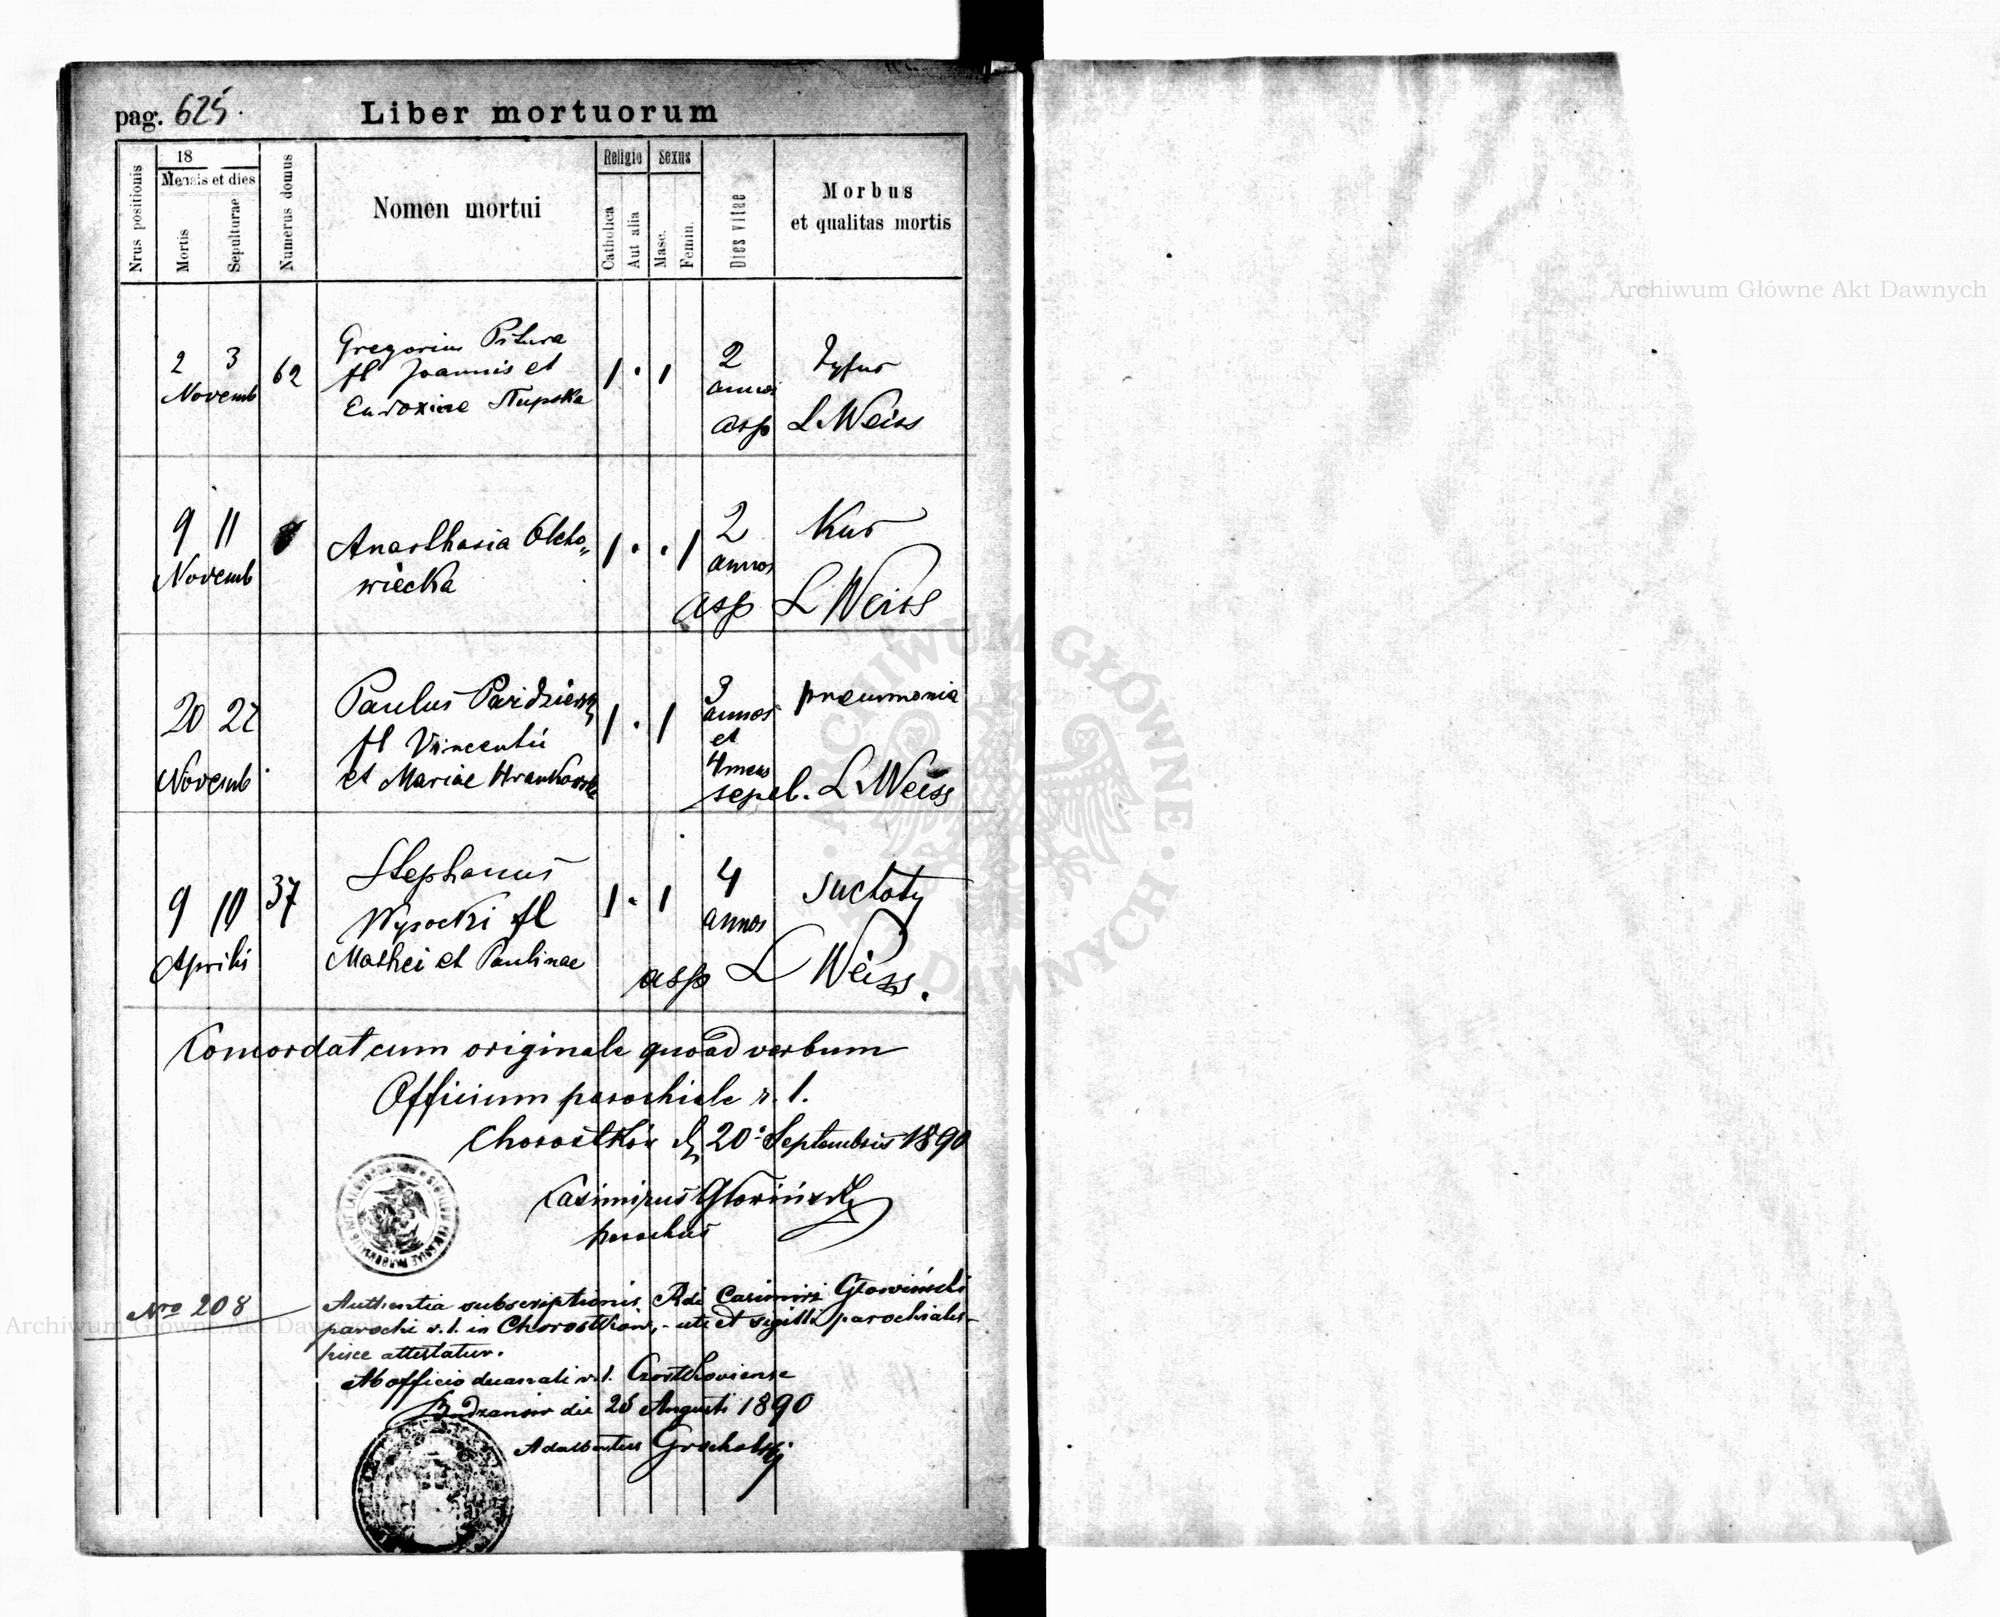 pag. 625.
Liber mortuorum
Nrus positionis
18
Mensis et dies
Mortis
Sepulturae
Numerus domus
Nomen mortui
Religio
Catholica
Aut alia
Sexus
Masc.
Femin.
Dies vitae
Morbus
et qualitas mortis
2 3
Novemb
62
Gregorius
fl Joannis et
Eudoxiae
1 · 1
2
annos
Tyfus
asp L. Weiss
9 11
Novemb
Anasthasia Olcho„
wiecka
1 · · 1
2
annos
Kur
asp L Weiss
20 22
Novemb
Paulus
fl Vincentii
et Mariae
1 · 1
3
annos
et
4 mens
pneumonia
sepel. L. Weiss
9 10
Aprilis
37
Stephanus
Wysocki fl
Mathei et Paulinae
1 · 1
4
annos
suchoty
asp L Weiss.
Concordat cum originale quoad verbum
Officium parochiale r. l.
Chorostków d 20· Septembris 1890
Casimirus Głowiński
parochus
Nro 208
Authentia subscriptionis Rdi Casimiri Głowiński
parochi r. l. in Chorostków, - uti et sigilli parochialis -
hisce attestatur.
Ab officio decanali r. l. Czortkoviense
Budzanów die 25 Augusti 1890
Adalbertus Grocholski
Archiwum Główne Akt Dawnych
ARCHIWUM GŁÓWNE AKT DAWNYCH
Archiwum Główne Akt Dawnych